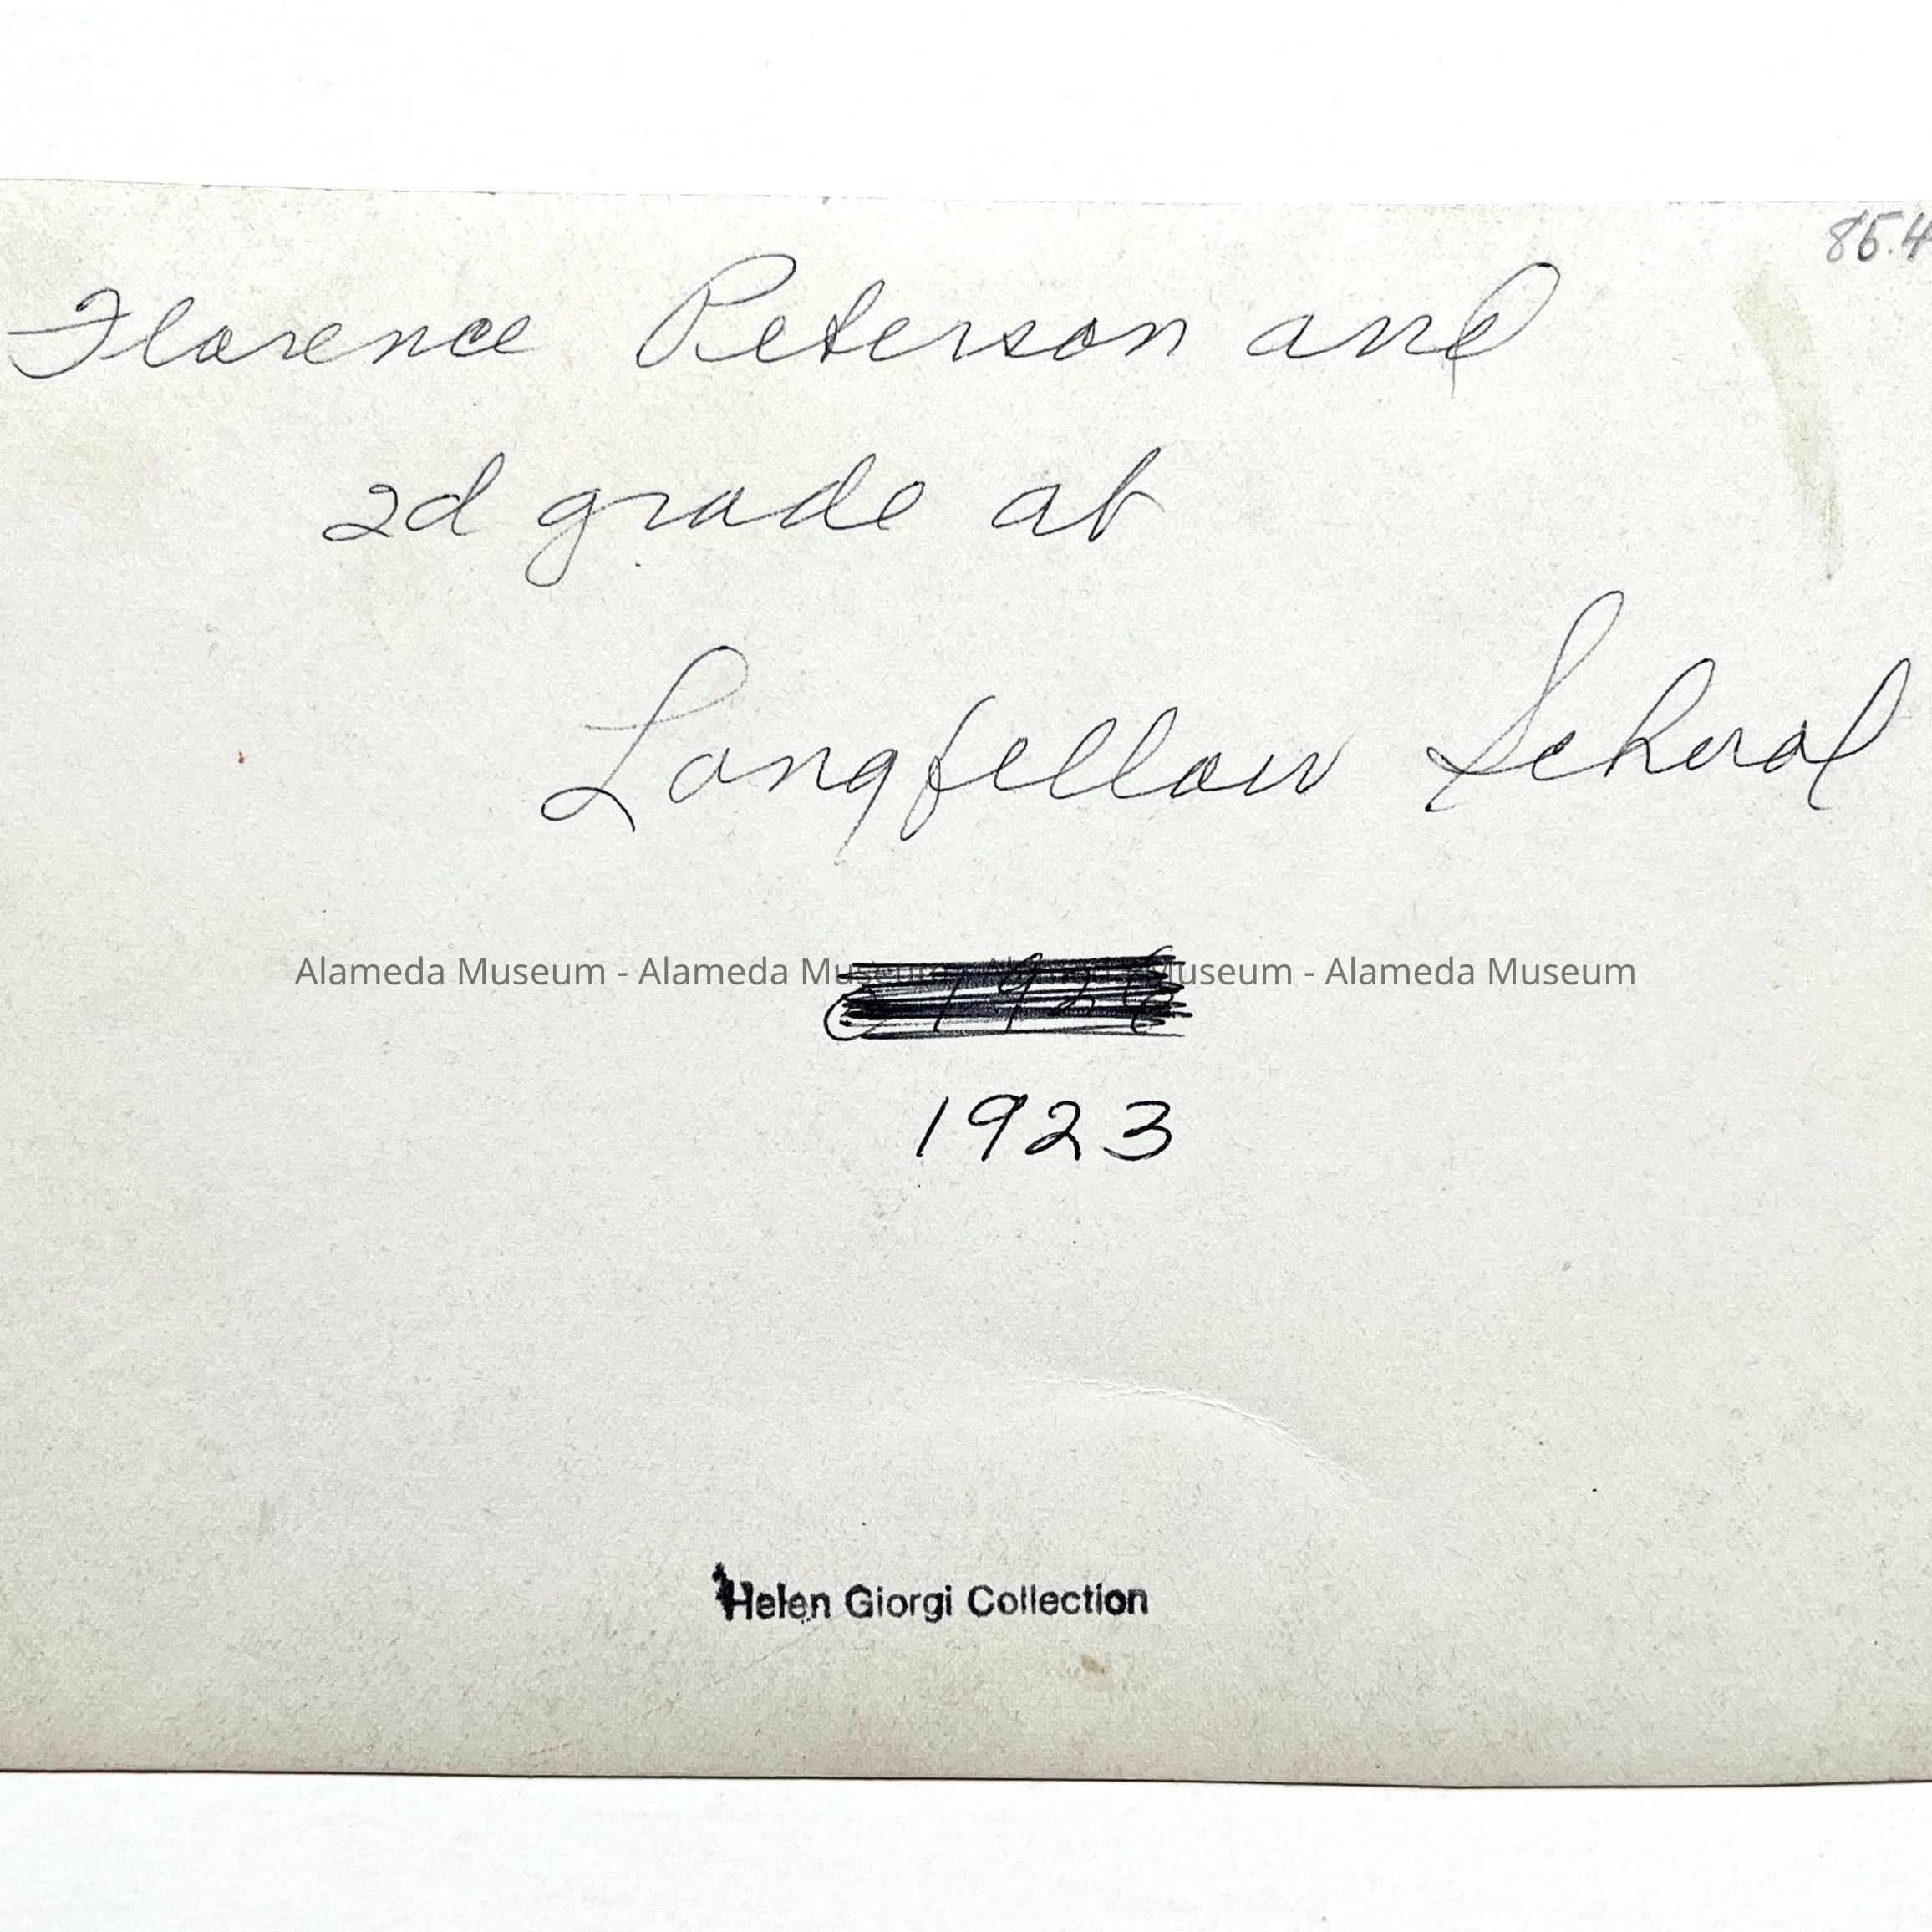 85.4
Florence Peterson and
2d grade at
Longfellow School
Alameda Museum - Alameda Museum - Alameda Museum - Alameda Museum
c 1926
1923
Helen Giorgi Collection